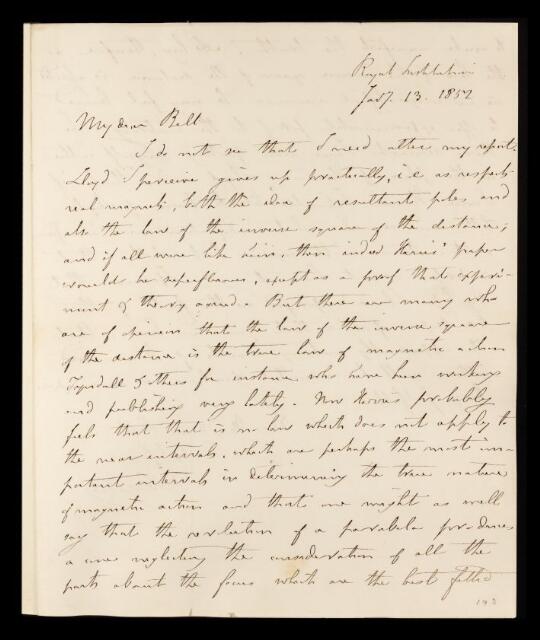 Royal Institution
Jany. 13. 1852
My dear Bell
I do not see that I need alter my report.
Lloyd I perceive gives up practically, i.e as respects
real magnets, both the idea of resultant poles and
also the law of the inverse square of the distance;
and if all were like him, then indeed Harris' paper
would be superfluous, except as a proof that experi-
ment & theory agreed. But there are many who
are of opinion that the law of the inverse square
of the distance is the true law of magnetic action
Tyndall & others for instance who have been working
and publishing very lately. Now Harris probably
feels that that is no law which does not apply to
the near intervals, which are perhaps the most im-
portant intervals in determining the true nature
of magnetic action and that one might as well
say that the revolution of a parabola produces
a cone neglecting the consideration of all the
parts about the focus which are the best fitted